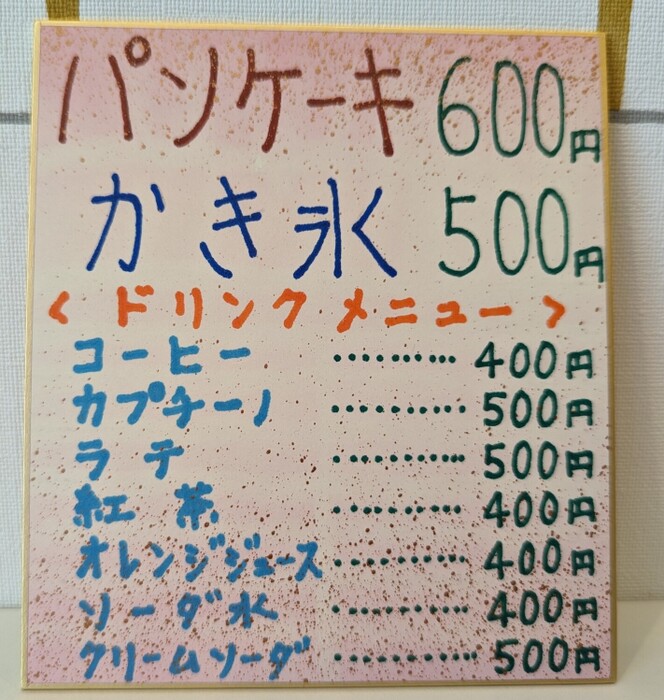 パンケーキ 600円
かき氷 500円
< ドリンクメニュー >
コーヒー ・・・・・・・・・・ 400円
カプチーノ ・・・・・・・・・・ 500円
ラテ ・・・・・・・・・・ 500円
紅茶 ・・・・・・・・・・ 400円
オレンジジュース ・・・・・・・・・・ 400円
ソーダ水 ・・・・・・・・・・ 400円
クリームソーダ ・・・・・・・・・・・ 500円